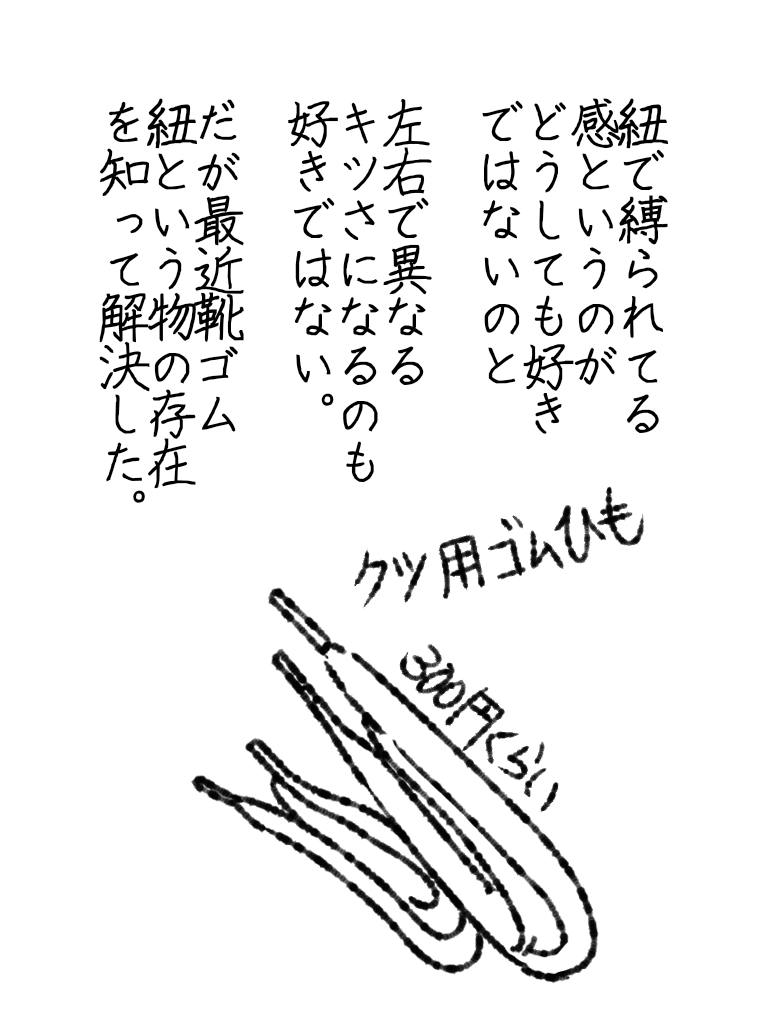 紐で縛られてる
感というのが
どうしても好き
ではないのと
左右で異なる
キツさになるのも
好きではない。
だが最近靴ゴム
紐という物の存在
を知って解決した。
クツ用ゴムひも
300円くらい